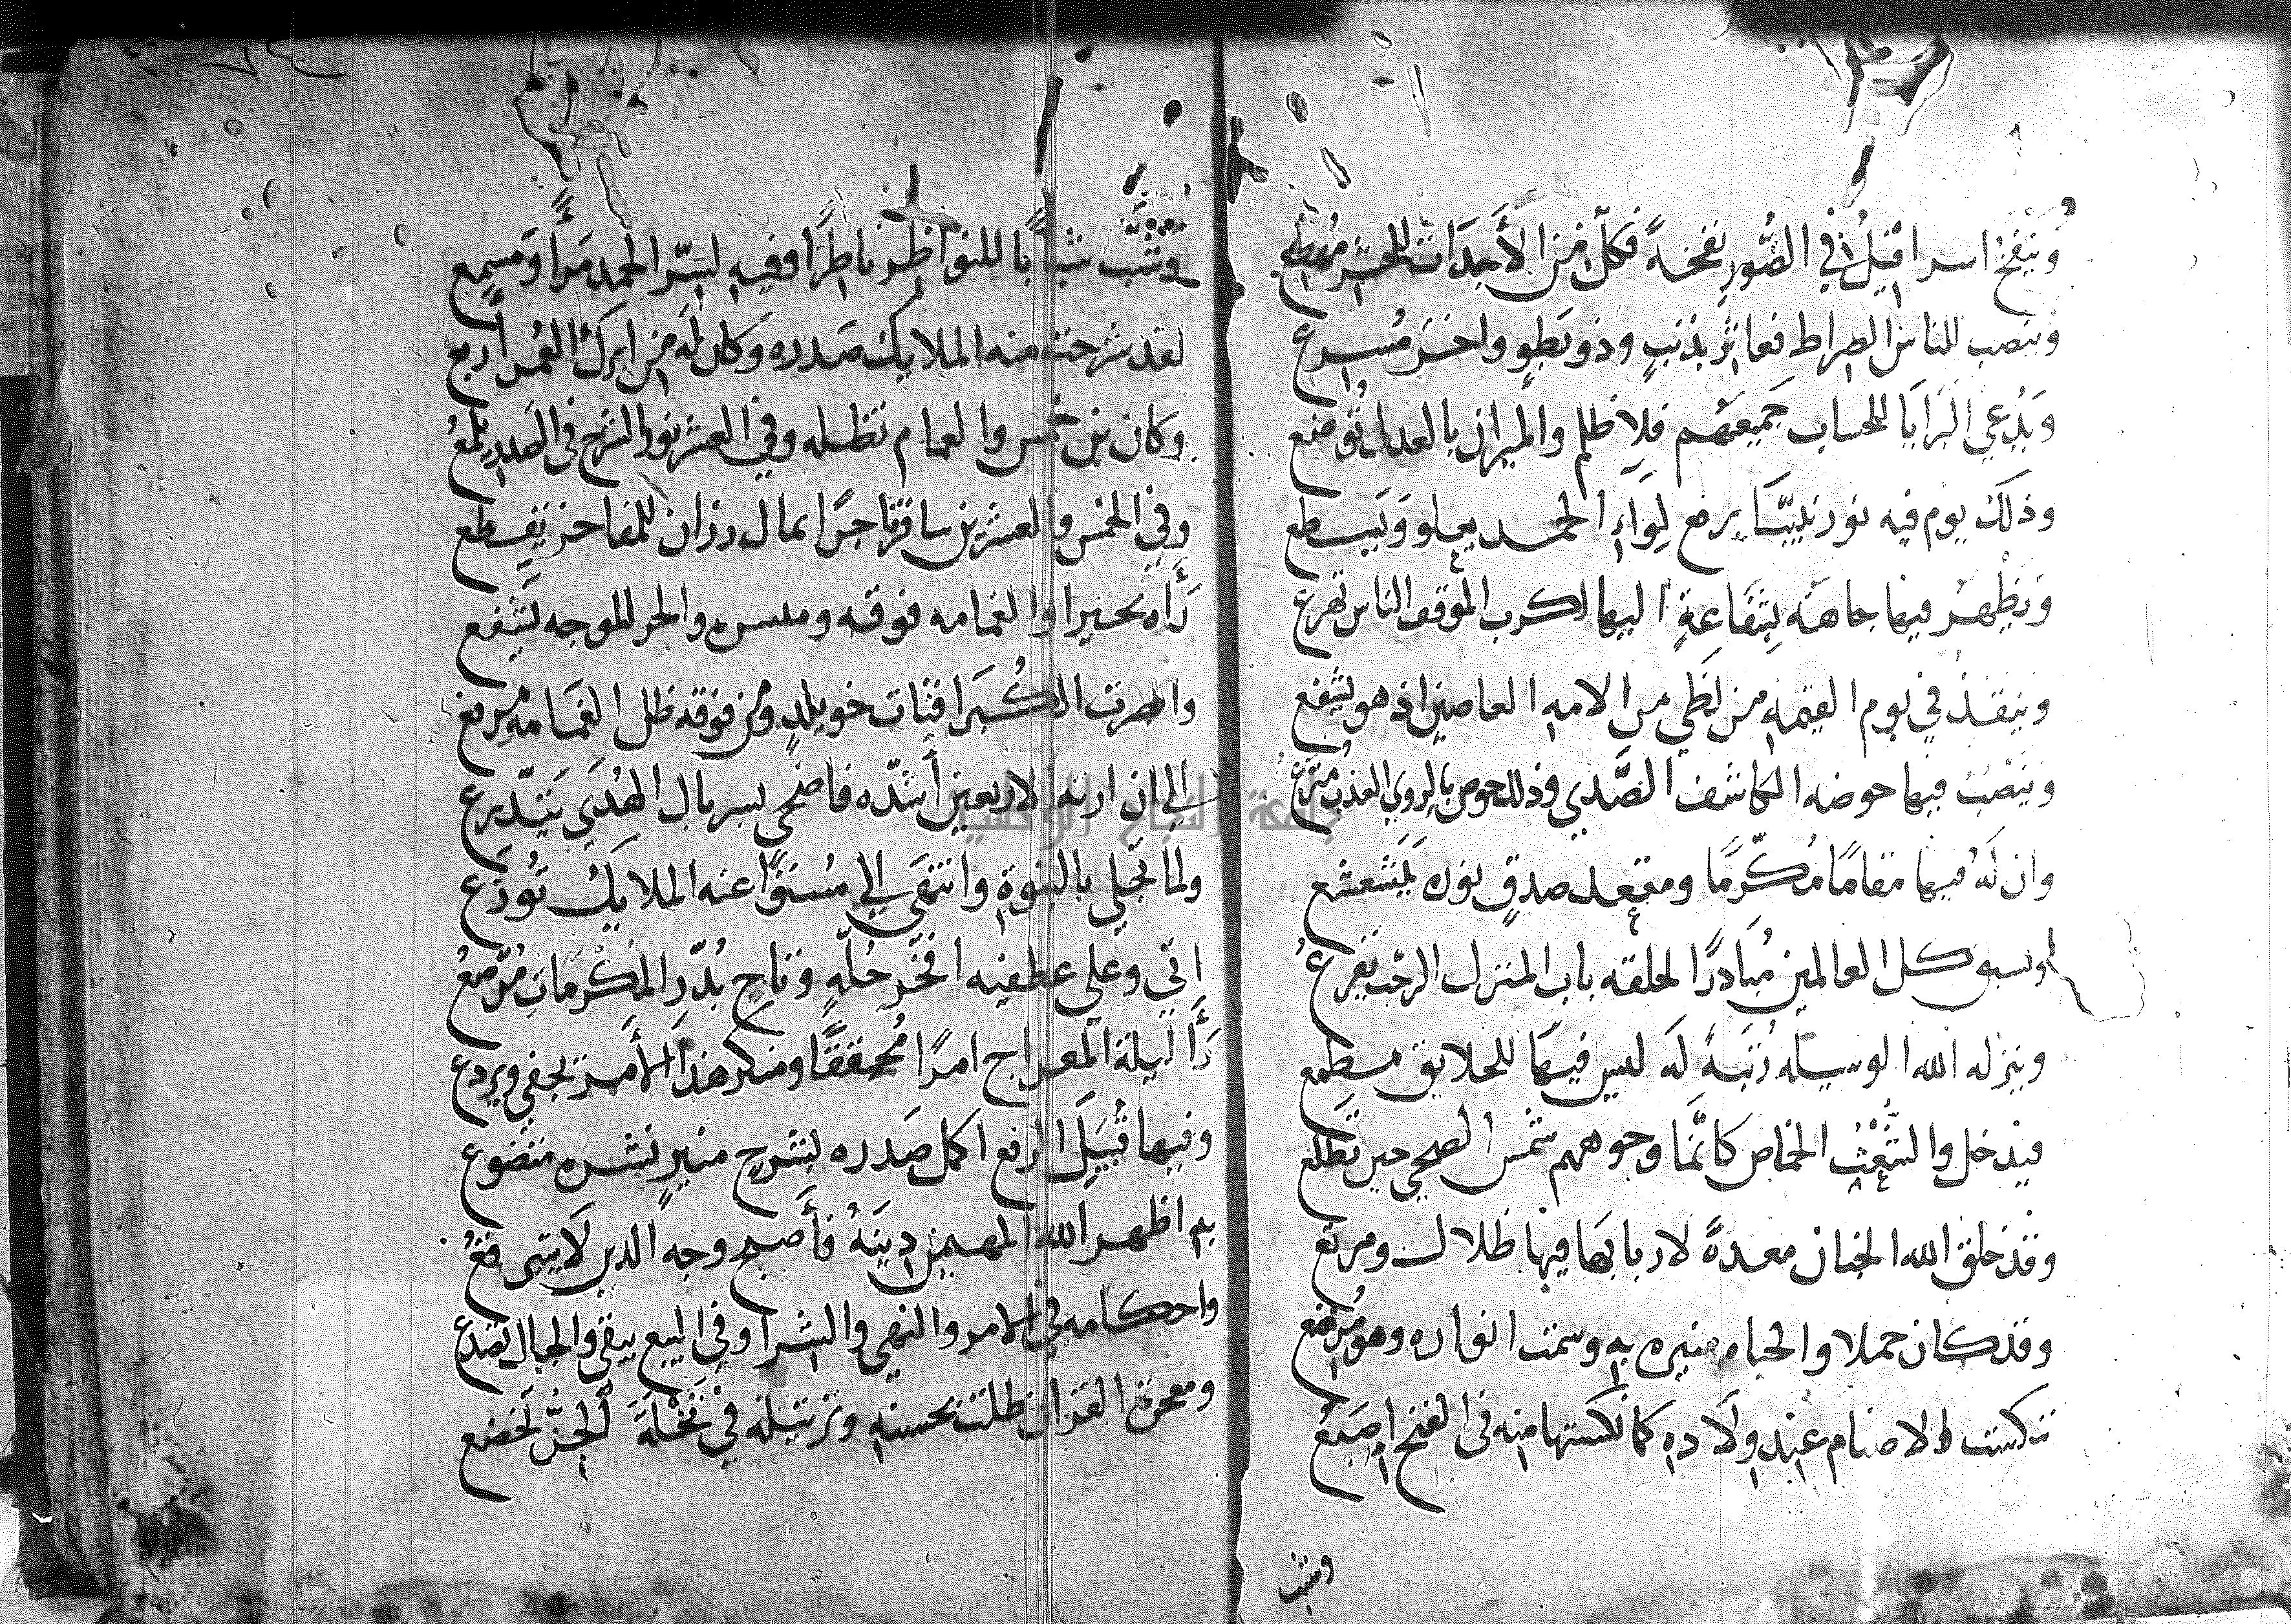 وينفخ اسرافيل في الصور نفخة فكل من الأجداث للحشر مهطع
وينصب للناس الصراط فعاثر بذنب وذو بطو واخر مسرع
ويدعي البرايا للحساب جميعهم فلا ظلم والميزان بالعدل توضع
وذلك يوم فيه نور نبينا يرفع لواء الحمد يعلو ويسطع
ويظهر فيها جاهه بشفاعة اليها لكرب الموقف الناس تهرع
وينقذ في يوم القيمه من لظي من الامه العاصين اذ هو يشفع
وينصب فيها حوضه الكاشف الصدي وذلك حوض بالروي العذب مترع
وان له فيها مقاما مكرما ومقعد صدق نوره يتشعشع
ويسبق كل العالمين مبادرا لحلقه باب المنزل الرحب يقرع
وينزله الله الوسيله رتبة له ليس فيها للخلايق مطمع
فيدخل والشعث الخماص كانما وجوههم شمس الضحي حين تطلع
وقد خلق الله الجنان معدة لاربابها فيها ظلال ومرتع
وقد كان حملا والجباه منيره به وسمت انواره وهو مرضع
تنكست الاصنام عند ولاده كما نكستها منه في الفتح اصبع
وشب
وشب شبابا للنواظر ناظرا وفيه لسر الحمد مرأ ومسمع
لقد شرحت منه الملايك صدره وكان له من ابرك العمر أربع
وكان بن خمس والغمام تظله وفي العشر نور الشرح في الصدر يلمع
وفي الخمس والعشرين سافر تاجرا بمال رزان للمفاخر يقطع
رأه بحيرا والغمامه فوقه وميسره والحر للوجه يسفع
وابصرت الكبرا فتات خويلد ومن فوقه ظل الغمامه يرفع
الي ان ارته الاربعين أشده فاضحى بسربال الهدي يتدرع
ولما تجلي بالنبوة وانتهى الي مستوا عنه الملايك توزع
اتي وعلي عطفيه افخر حلة وتاج بدر المكرمات مرصع
رأ ليلة المعراج امرا محققا ومنكر هذا الأمر يجفي ويردع
وفيها قبيل الرفع اكمل صدره بشرح منير نشره متضوع
به اظهر الله المهيمن دينه فأصبح وجه الدين لا يتبرقع
واحكامه في الامر والنهي والشرا وفي البيع يبقى والجبال تصدع
ومعجزة القران ظلت بحسنه وترتيله في نخلة الجن تخضع